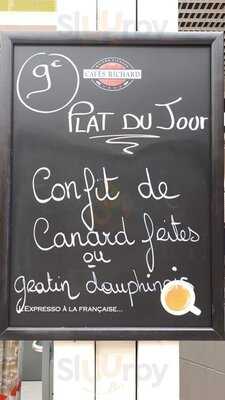 Sluurpy
9€
CAFÉS RICHARD
PLAT DU JOUR
Confit de
Canard feites
ou
gratin dauphinois
L'EXPRESSO À LA FRANÇAISE...
Sluurpy